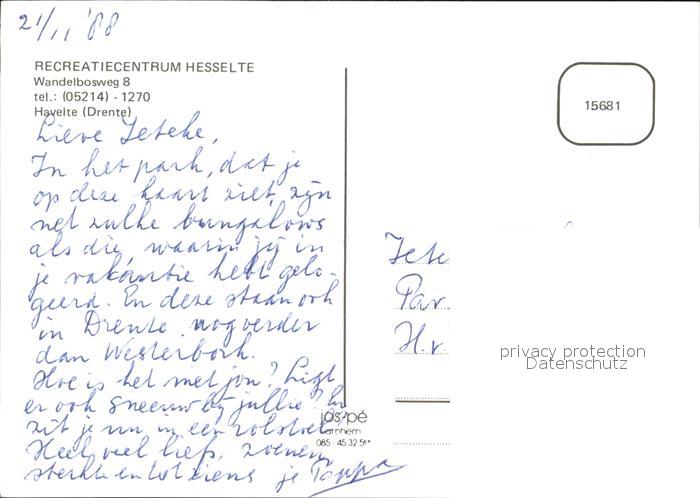 21/11 '88
RECREATIECENTRUM HESSELTE
Wandelbosweg 8
tel.: (05214) - 1270
Havelte (Drente)
15681
Lieve Jeteke,
In het park, dat je
op deze kaart ziet, zijn
net zulke bungalows
als die, waarin jij in
je vakantie hebt gelo-
geerd. En deze staan ook
in Drente nog verder
dan Westerbork.
Hoe is het met jou? Ligt
er ook sneeuw bij jullie? En
zit je nu in een rolstoel?
Heel veel liefs, zoenen
sterkte en tot ziens je Pappa
Jete
Par
H.v
privacy protection
Datenschutz
jos-pé
arnhem
085 - 45 32 51*